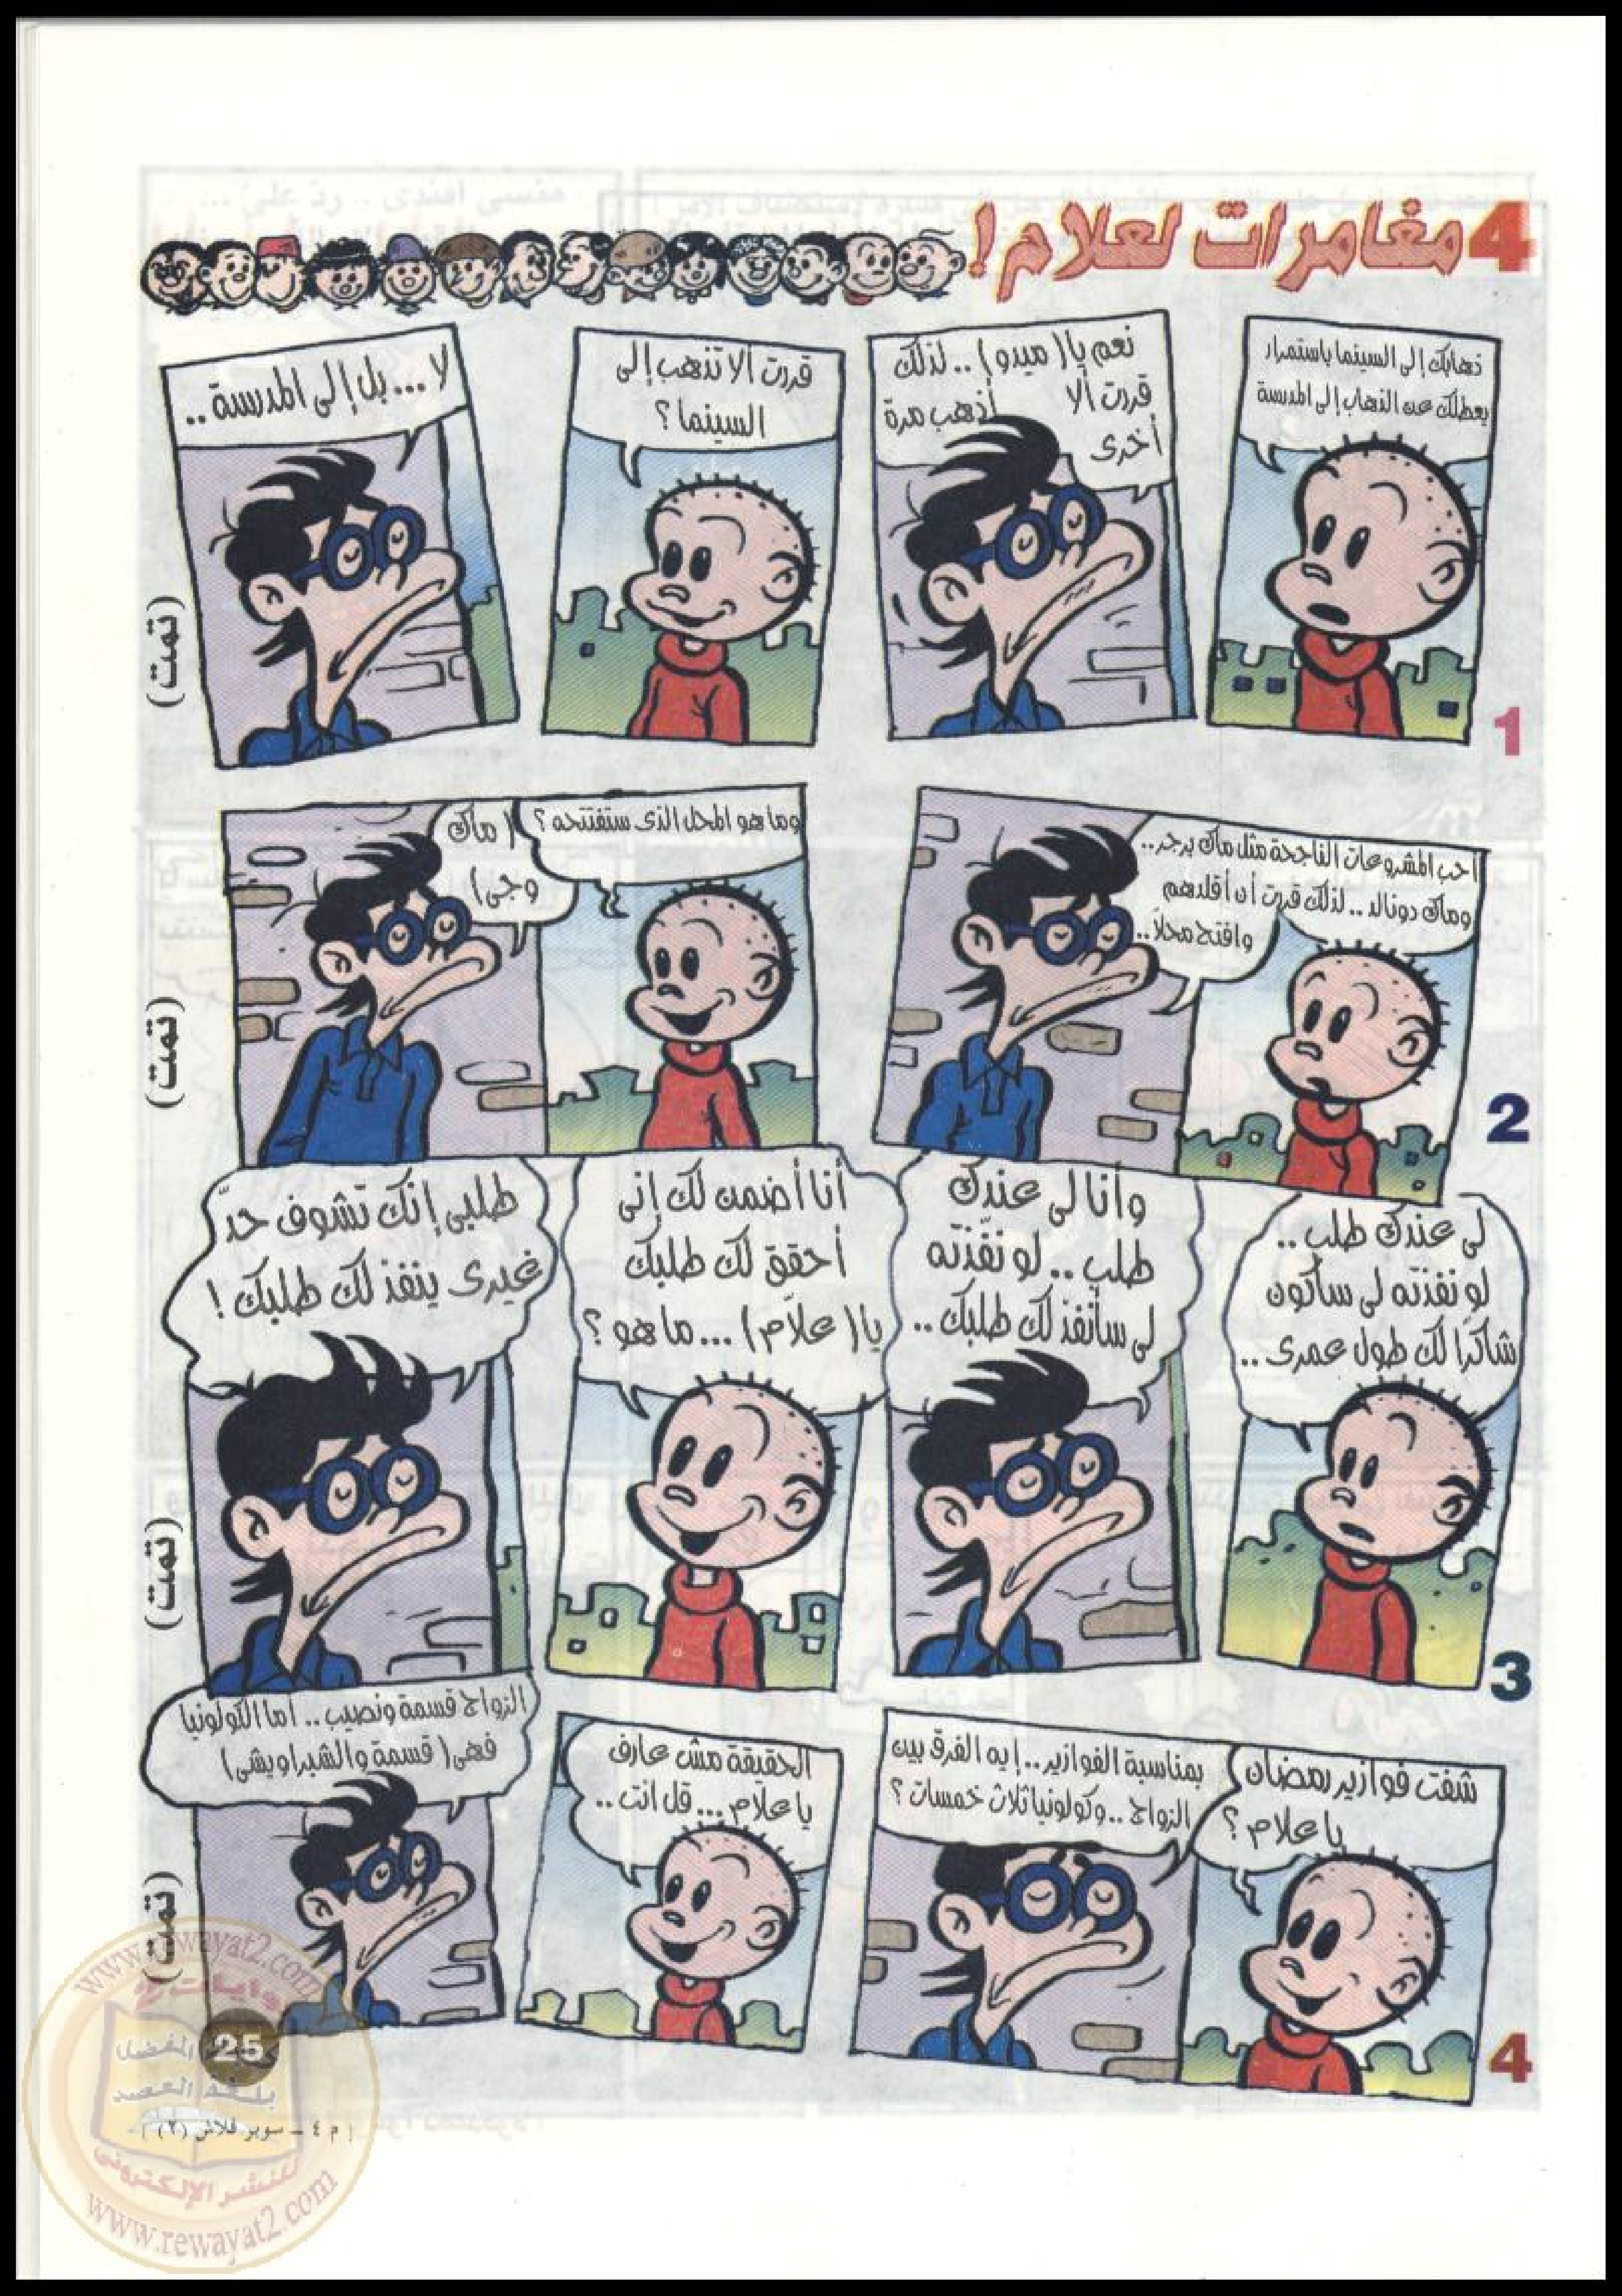 4 مغامرات لعلام !
ذهابك إلى السينما باستمرار
يعطلك عن الذهاب إلى المدرسة
نعم يا (ميدو) .. لذلك
قررت ألا
أذهب مرة
أخرى
قررت ألا تذهب إلى
السينما ؟
لا ... بل إلى المدرسة ..
(تمت)
1
أحب المشروعات الناجحة مثل ماك برجر ..
وماك دونالد .. لذلك قررت أن أقلدهم
وافتح محلاً ..
وما هو المحل الذى ستفتتحه ؟
(ماك
وجى)
(تمت)
2
لى عندك طلب ..
لو نفذته لى سأكون
شاكرًا لك طول عمرى ..
وأنا لى عندك
طلب .. لو نفّذته
لى سأنفذ لك طلبك ..
أنا أضمن لك إنى
أحقق لك طلبك
يا (علاّم) ... ما هو ؟
طلبى إنك تشوف حدّ
غيرى ينفذ لك طلبك !
(تمت)
3
شفت فوازير رمضان
يا علام ؟
بمناسبة الفوازير .. إيه الفرق بين
الزواج .. وكولونيا ثلاث خمسات ؟
الحقيقة مش عارف
يا علاّم ... قل انت ..
الزواج قسمة ونصيب .. أما الكولونيا
فهى (قسمة والشبراويشى)
(تمت)
4
25
[ م ٤ – سوبر فلاش (٢) ]
www.rewayat2.com
للنشر الإلكترونى
www.rewayat2.com